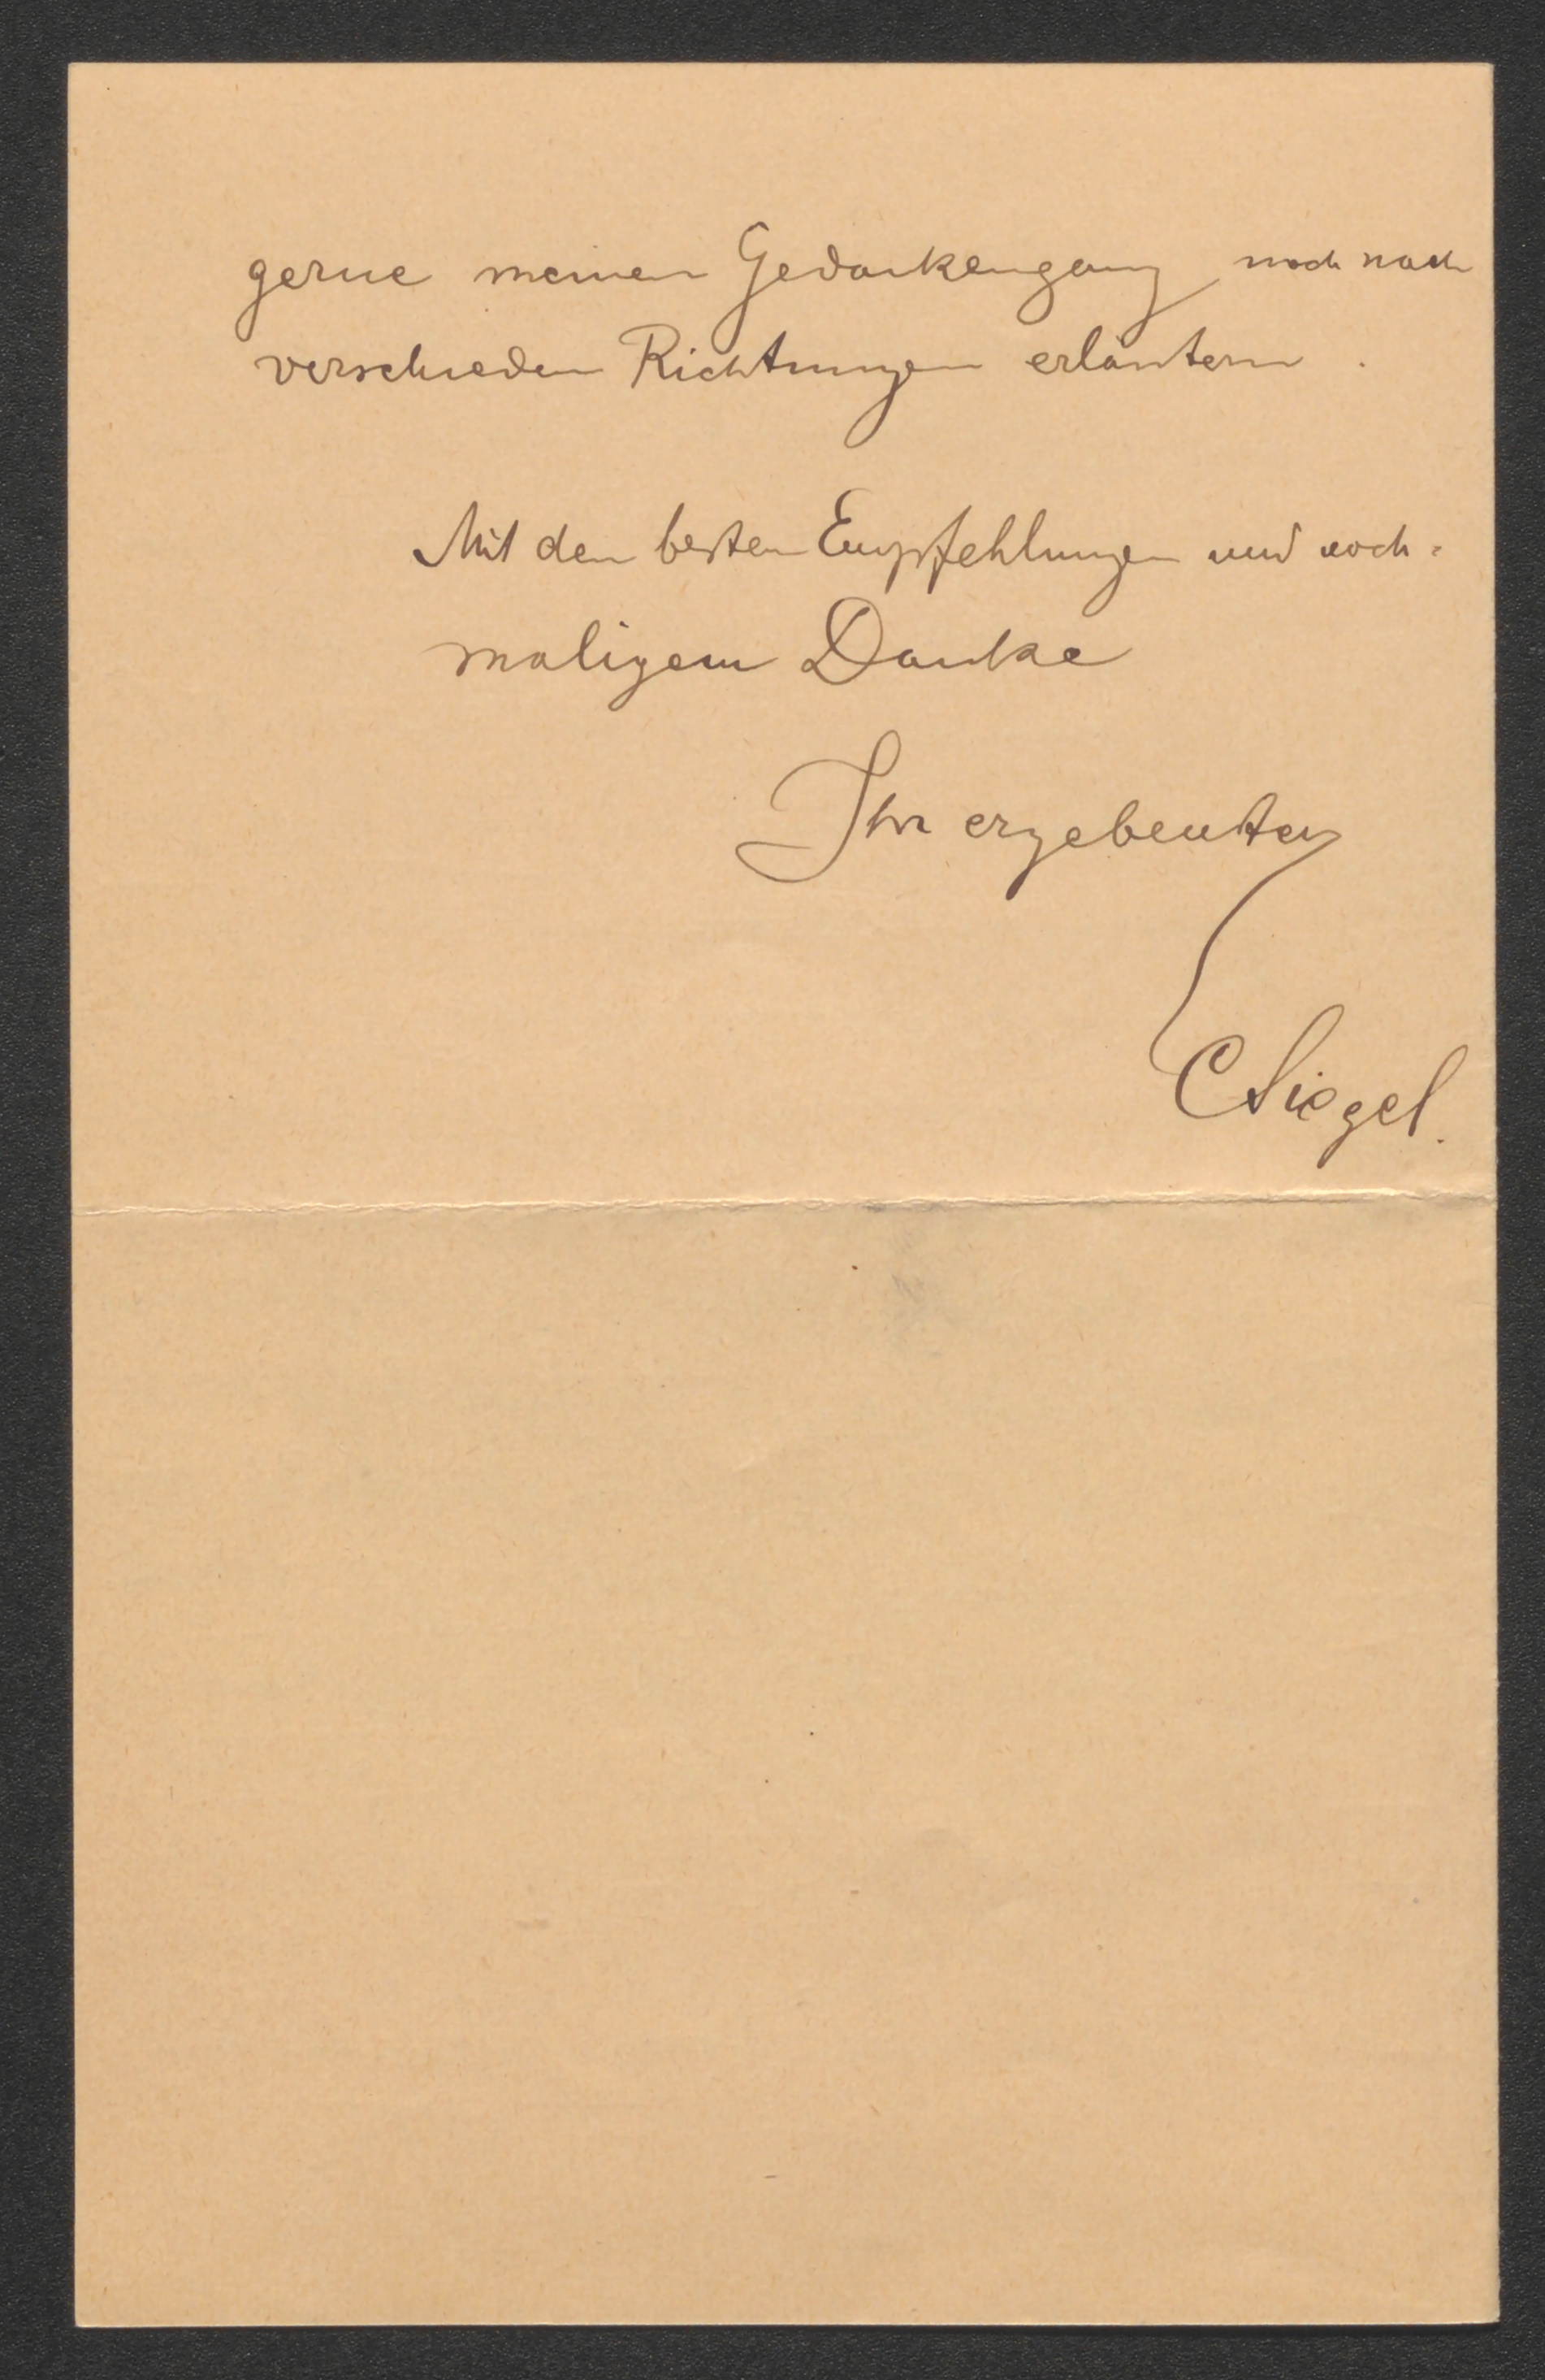 gerne meinen Gedankengang noch nach
verschieden Richtungen erläutern.
Mit den besten Empfehlungen und noch-
maligem Danke
Ihr ergebenster
CSiegel.